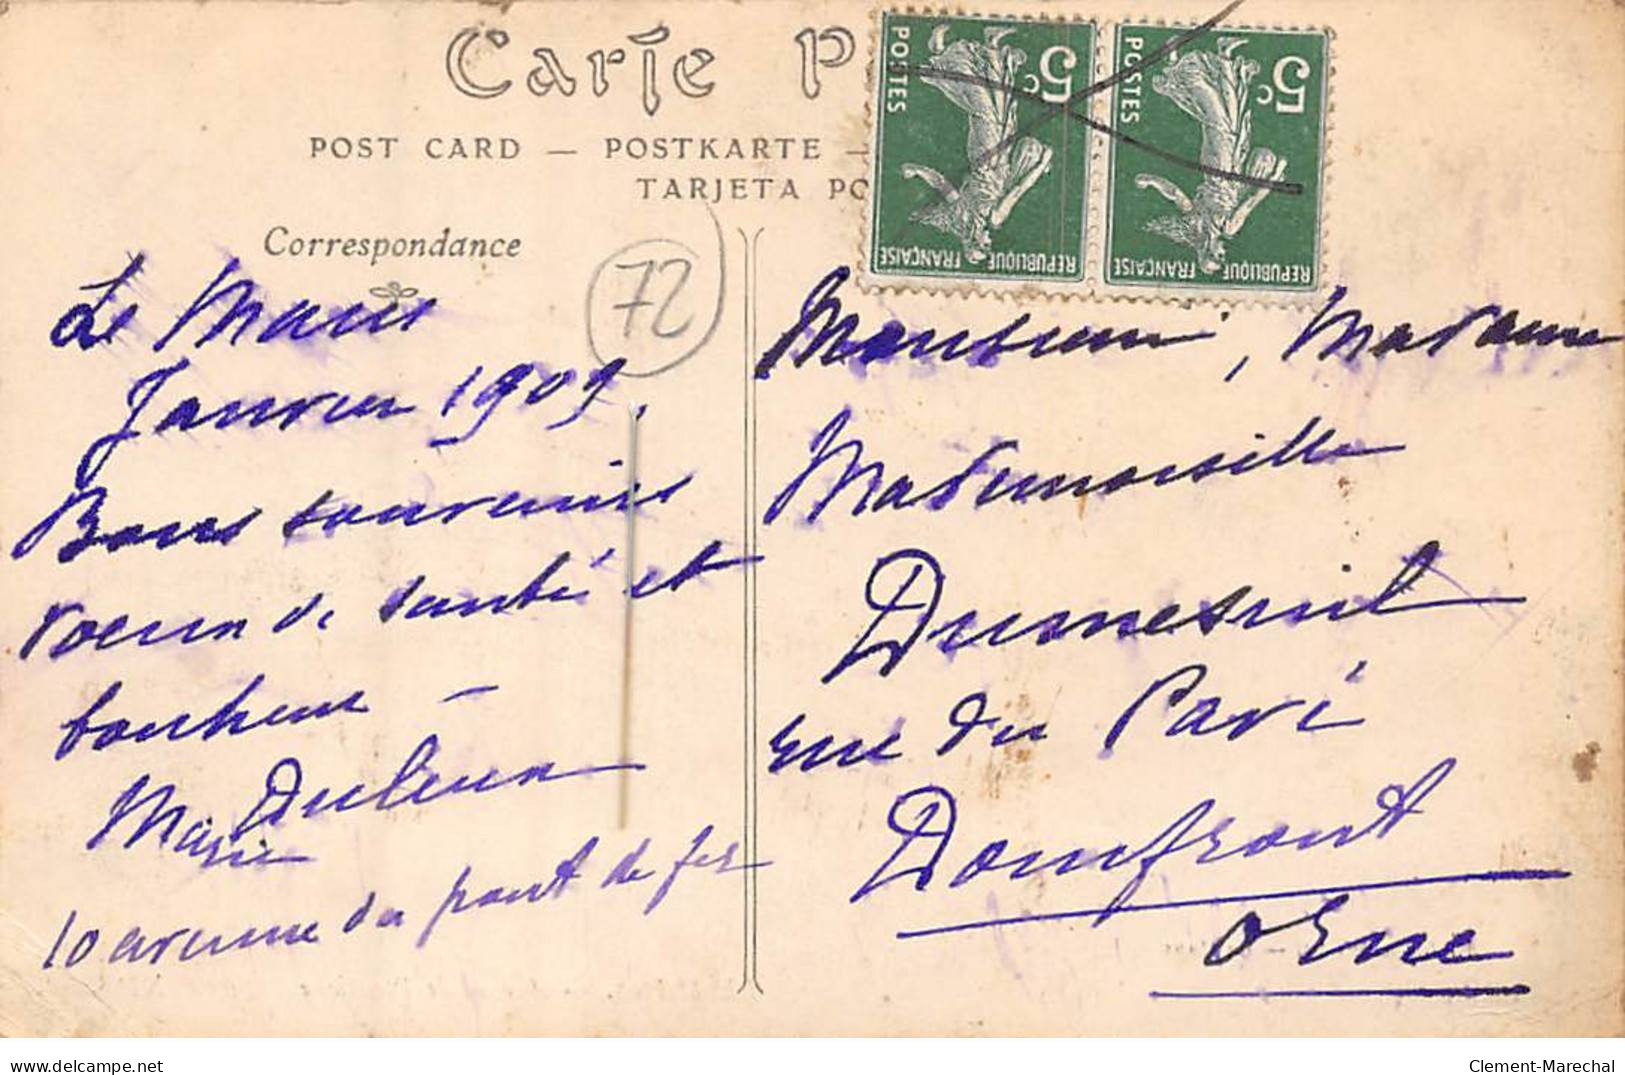 Carte P
POST CARD — POSTKARTE —
TARJETA PO
Correspondance
72
POSTES
5c
REPUBLIQUE FRANÇAISE
POSTES
5c
REPUBLIQUE FRANÇAISE
Le Mans
Janvier 1909.
Bons souvenirs
voeux de santé et
bonheur –
Marie
10 avenue du pont de fer
Monsieur, Madame
Mademoiselle
Dumesnil
rue du Pavé
Domfront
Orne
www.delcampe.net
Clement-Marechal